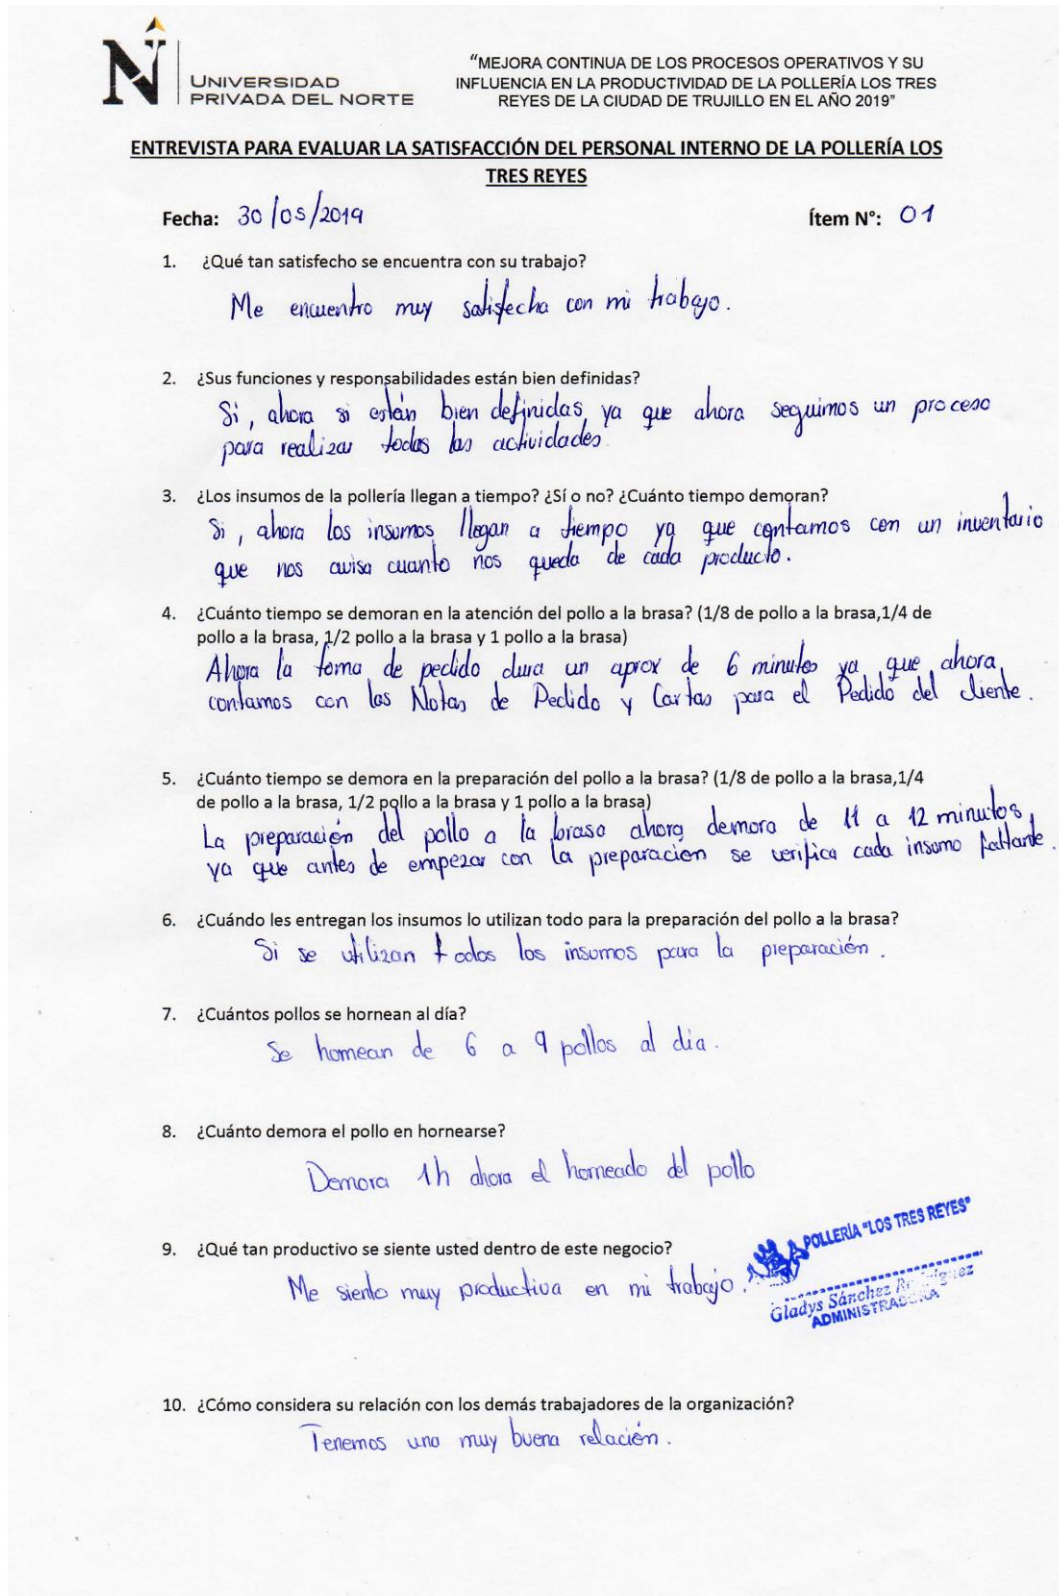 N
UNIVERSIDAD
PRIVADA DEL NORTE
"MEJORA CONTINUA DE LOS PROCESOS OPERATIVOS Y SU
INFLUENCIA EN LA PRODUCTIVIDAD DE LA POLLERÍA LOS TRES
REYES DE LA CIUDAD DE TRUJILLO EN EL AÑO 2019"
ENTREVISTA PARA EVALUAR LA SATISFACCIÓN DEL PERSONAL INTERNO DE LA POLLERÍA LOS
TRES REYES
Fecha: 30/05/2019 Ítem N°: 01
1. ¿Qué tan satisfecho se encuentra con su trabajo?
Me encuentro muy satisfecha con mi trabajo.
2. ¿Sus funciones y responsabilidades están bien definidas?
Si, ahora si están bien definidas ya que ahora seguimos un proceso
para realizar todas las actividades.
3. ¿Los insumos de la pollería llegan a tiempo? ¿Sí o no? ¿Cuánto tiempo demoran?
Si, ahora los insumos llegan a tiempo ya que contamos con un inventario
que nos avisa cuanto nos queda de cada producto.
4. ¿Cuánto tiempo se demoran en la atención del pollo a la brasa? (1/8 de pollo a la brasa,1/4 de
pollo a la brasa, 1/2 pollo a la brasa y 1 pollo a la brasa)
Ahora la toma de pedido dura un aprox de 6 minutos ya que ahora
contamos con las Notas de Pedido y Cartas para el Pedido del cliente.
5. ¿Cuánto tiempo se demora en la preparación del pollo a la brasa? (1/8 de pollo a la brasa,1/4
de pollo a la brasa, 1/2 pollo a la brasa y 1 pollo a la brasa)
La preparación del pollo a la brasa ahora demora de 11 a 12 minutos,
ya que antes de empezar con la preparación se verifica cada insumo faltante.
6. ¿Cuándo les entregan los insumos lo utilizan todo para la preparación del pollo a la brasa?
Si se utilizan todos los insumos para la preparación.
7. ¿Cuántos pollos se hornean al día?
Se hornean de 6 a 9 pollos al dia.
8. ¿Cuánto demora el pollo en hornearse?
Demora 1h ahora el horneado del pollo
9. ¿Qué tan productivo se siente usted dentro de este negocio?
Me siento muy productiva en mi trabajo.
POLLERÍA "LOS TRES REYES"
Gladys Sánchez Rodríguez
ADMINISTRADORA
10. ¿Cómo considera su relación con los demás trabajadores de la organización?
Tenemos una muy buena relación.